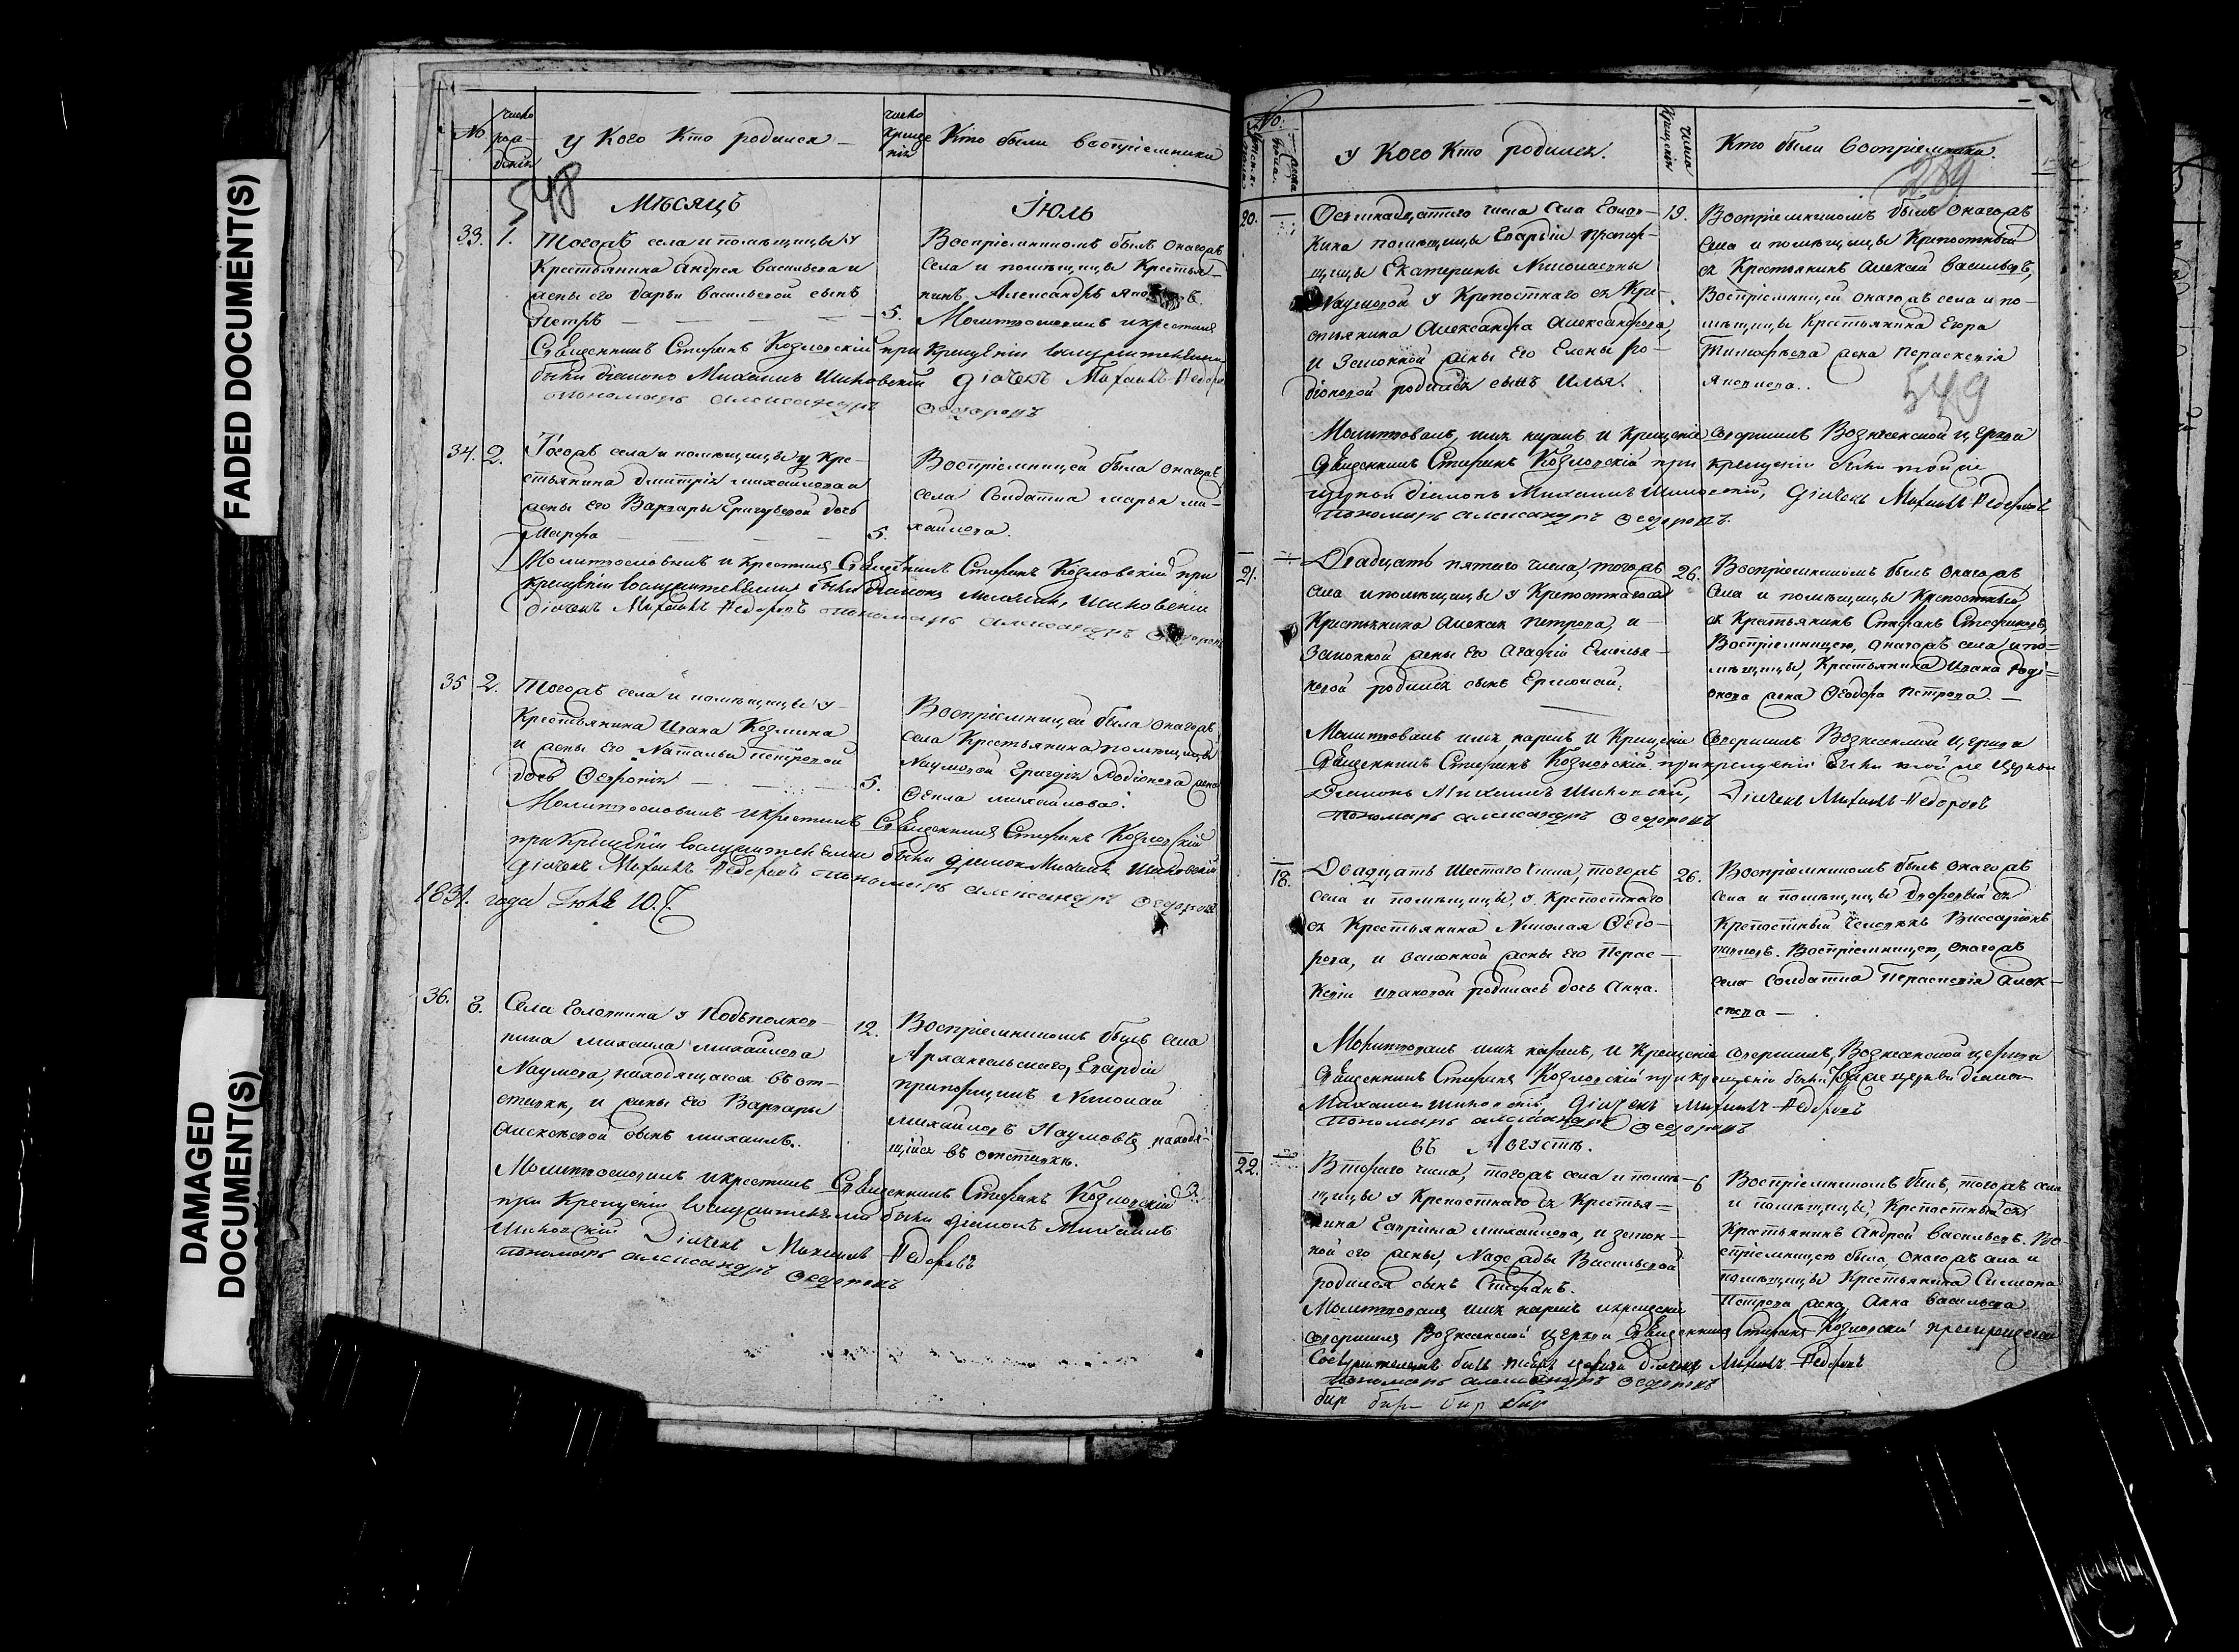 FADED DOCUMENT(S)
DAMAGED
DOCUMENT(S)
№
число
рож-
денія
у Кого Кто родился
число
креще
нія
Кто были воспріемники
548
Мѣсяцъ
Іюль
33.
1.
Тогожъ села и помѣщицы у
Крестьянина Андрея Васильева и
жены его Дарьи Васильевой сынъ
Петръ
5.
Воспріемникомъ былъ онагожъ
села и помѣщицы Крестья-
нинъ, Александръ
Молитвословилъ и крестилъ
Священникъ Стефанъ Козловскій при Крещеніи
были діаконъ Михаилъ Шиловскій Дьячекъ Михаилъ Федоровъ
пономарь Александръ Федоровъ
34.
2.
Тогожъ села и помѣщицы у Кре-
стьянина Дмитрія Михайлова и
жены его Варвары Григорьевой дочь
Марфа
5.
Воспріемницей была онагожъ
села Солдатка Марья Ми-
хайлова.
Молитвословилъ и крестилъ Священникъ Стефанъ Козловскій при
крещеніи были діаконъ Михаилъ Шиловскій
дьячекъ Михаилъ Федоровъ пономарь Александръ Федоровъ
35
2.
Тогожъ села и помѣщицы у
Крестьянина Ивана Козмина
и жены его Натальи Петровой
дочь Февронія
5.
Воспріемницей была онагожъ
села Крестьянина помѣщицы
Наумовой Григорія Родіонова жена
Фекла Михайлова.
Молитвословилъ и крестилъ Священникъ Стефанъ Козловскій
при Крещеніи были діаконъ Михаилъ Шиловскій
дьячекъ Михаилъ Федоровъ пономарь Александръ Федоровъ
1831. года
36.
3.
Села у Подъполков-
ника Михаила Михайлова
Наумова, находящагося въ от-
ставкѣ, и жены его Варвары
Алексѣевой сынъ Михаилъ.
12.
Воспріемникомъ былъ села
Архангельскаго, Гвардіи
прапорщикъ Николай
Михайловъ Наумовъ, находя-
щійся въ отставкѣ.
Молитвословилъ и крестилъ Священникъ Стефанъ Козловскій
при Крещеніи были діаконъ Михаилъ
Шиловскій Дьячекъ Михаилъ Федоровъ
пономарь Александръ Федоровъ
№.
у Кого Кто родился.
Числа
Крещенія
Кто были Воспріемники.
289
20.
Осемнадцатаго числа села
помѣщицы Гвардіи прапор-
щицы Екатерины Николаевны
Наумовой у Крепостнаго ея Кре-
стьянина Александра Александрова,
и Законной жены его Елены Ро-
діоновой родился сынъ Илья.
19.
Воспріемникомъ былъ онагожъ
села и помѣщицы Крепостный
ея Крестьянинъ Алексей Васильевъ,
Воспріемницей онагожъ села и по-
мѣщицы Крестьянина Егора
Тимофѣева жена Параскевія
549
Молитвовалъ, имя нарекъ и Крещеніе совершилъ Вознесенской церкви
Священникъ Стефанъ Козловскій при крещеніи были той же
церкви діаконъ Михаилъ Шиловскій, Дьячекъ Михаилъ Федоровъ
пономарь Александръ Федоровъ.
21.
Двадцать пятаго числа, тогожъ
села и помѣщицы у Крепостнаго ея
Крестьянина Алексея Петрова, и
Законной жены его Агафіи Емелья-
новой родился сынъ Ермолай.
26.
Воспріемникомъ былъ онагожъ
села и помѣщицы Крепостный
ея Крестьянинъ Стефанъ Стефановъ,
Воспріемницею, онагожъ села и по-
мѣщицы, Крестьянина Ивана Роді-
онова жена Федора Петрова.
Молитвовалъ имя нарекъ и Крещеніе Совершилъ Вознесенской Церкви
Священникъ Стефанъ Козловскій при крещеніи были той же Церкви
Діаконъ Михаилъ Шиловскій, Дьячекъ Михаилъ Федоровъ
пономарь Александръ Федоровъ
18.
Двадцать Шестаго числа, тогожъ
села и помѣщицы, у Крепостнаго
ея Крестьянина Николая Федо-
рова, и законной жены его Парас-
кевіи Ивановой родилась дочь Анна.
26.
Воспріемникомъ былъ онагожъ
села и помѣщицы дворовый ея
Крепостный человѣкъ Виссаріонъ
Воспріемницею, онагожъ
села Солдатка Параскевія Алек-
сѣева
Молитвовалъ имя нарекъ, и Крещеніе совершилъ, Вознесенской церкви
Священникъ Стефанъ Козловскій при крещеніи были той же церкви діаконъ
Михаилъ Шиловскій, Дьячекъ Михаилъ Федоровъ
пономарь Александръ Федоровъ
въ Августѣ.
22.
Втораго числа, тогожъ села и помѣ-
щицы у Крепостнаго ея Крестья-
нина Гавріила Михайлова, и закон-
ной его жены, Надежды Васильевой
родился сынъ Стефанъ.
6
Воспріемникомъ былъ, тогожъ села
и помѣщицы, Крепостный ея
Крестьянинъ Андрей Васильевъ. Во-
спріемницею была, онагожъ села и
помѣщицы Крестьянина Симеона
Петрова жена, Анна Васильева
Молитвовалъ имя нарекъ и крещеніе
совершилъ Вознесенской церкви Священникъ Стефанъ Козловскій
дьячекъ Михаилъ Федоровъ
пономарь Александръ Федоровъ